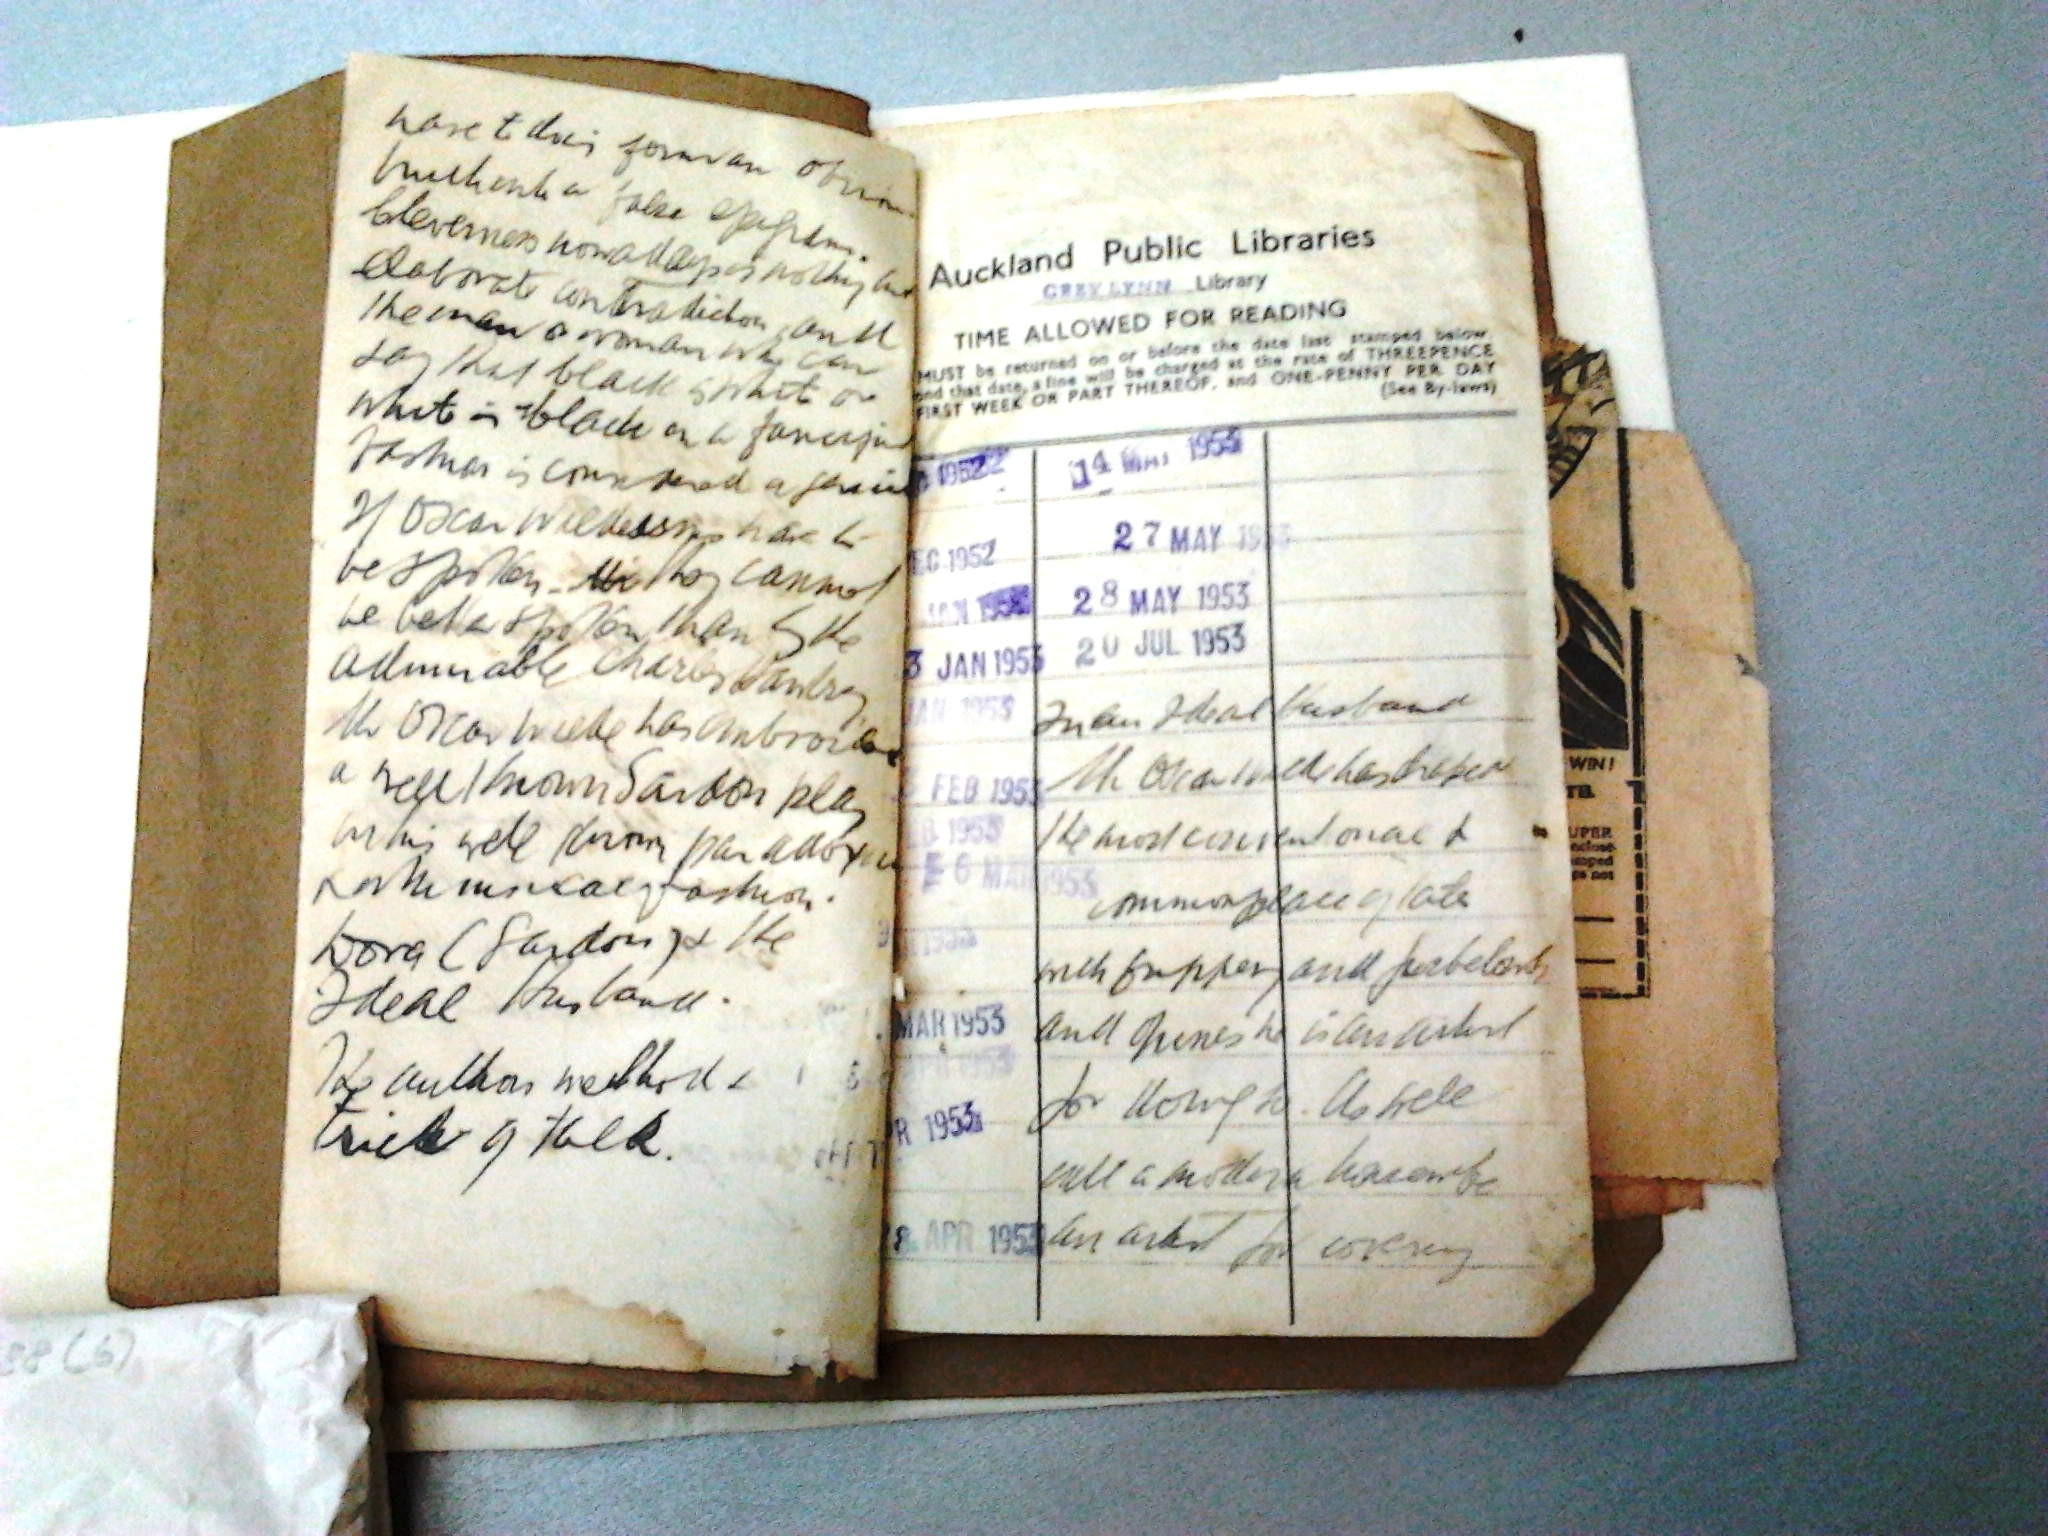 have to do is form an obvious
truth into a false epigram.
Cleverness nowadays is nothing but
elaborate contradiction, and
the man or woman who can
say that black is white or
white is black in a fanciful
fashion is considered a genius
If Oscar Wildeisms have to
be spoken they cannot
be better spoken than by the
admirable Charles Hawtrey
Mr Oscar Wilde has embroidered
a well known Sardou play
in his well known paradoxical
fashion.
Dora (Sardou) & the
Ideal Husband.
The authors method &
trick of talk.
Auckland Public Libraries
GREY LYNN Library
TIME ALLOWED FOR READING
MUST be returned on or before the date last stamped below
and that date, a fine will be charged at the rate of THREEPENCE
FIRST WEEK OR PART THEREOF, and ONE-PENNY PER DAY
(See By-laws)
1952
14 MAY 1953
27 MAY 1953
EC 1952
JAN
28 MAY 1953
3 JAN 1953
20 JUL 1953
JAN 1953
FEB 1953
B 1953
6 MAR 1953
MAR 1953
APR 1953
PR 1953
28 APR 1953
In an Ideal Husband
Mr Oscar Wilde has draped
the most conventional &
commonplace of tale
with frippery and furbelows
and opines he is an artist
for doing so. As well
call a modern housewife
an artist for covering
WIN!
SUPER
38 (6)